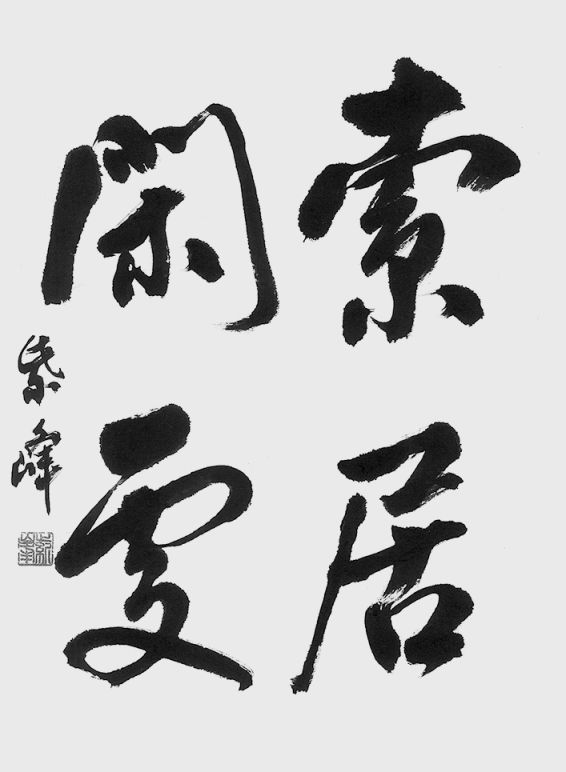 索居
閑處
紫峰